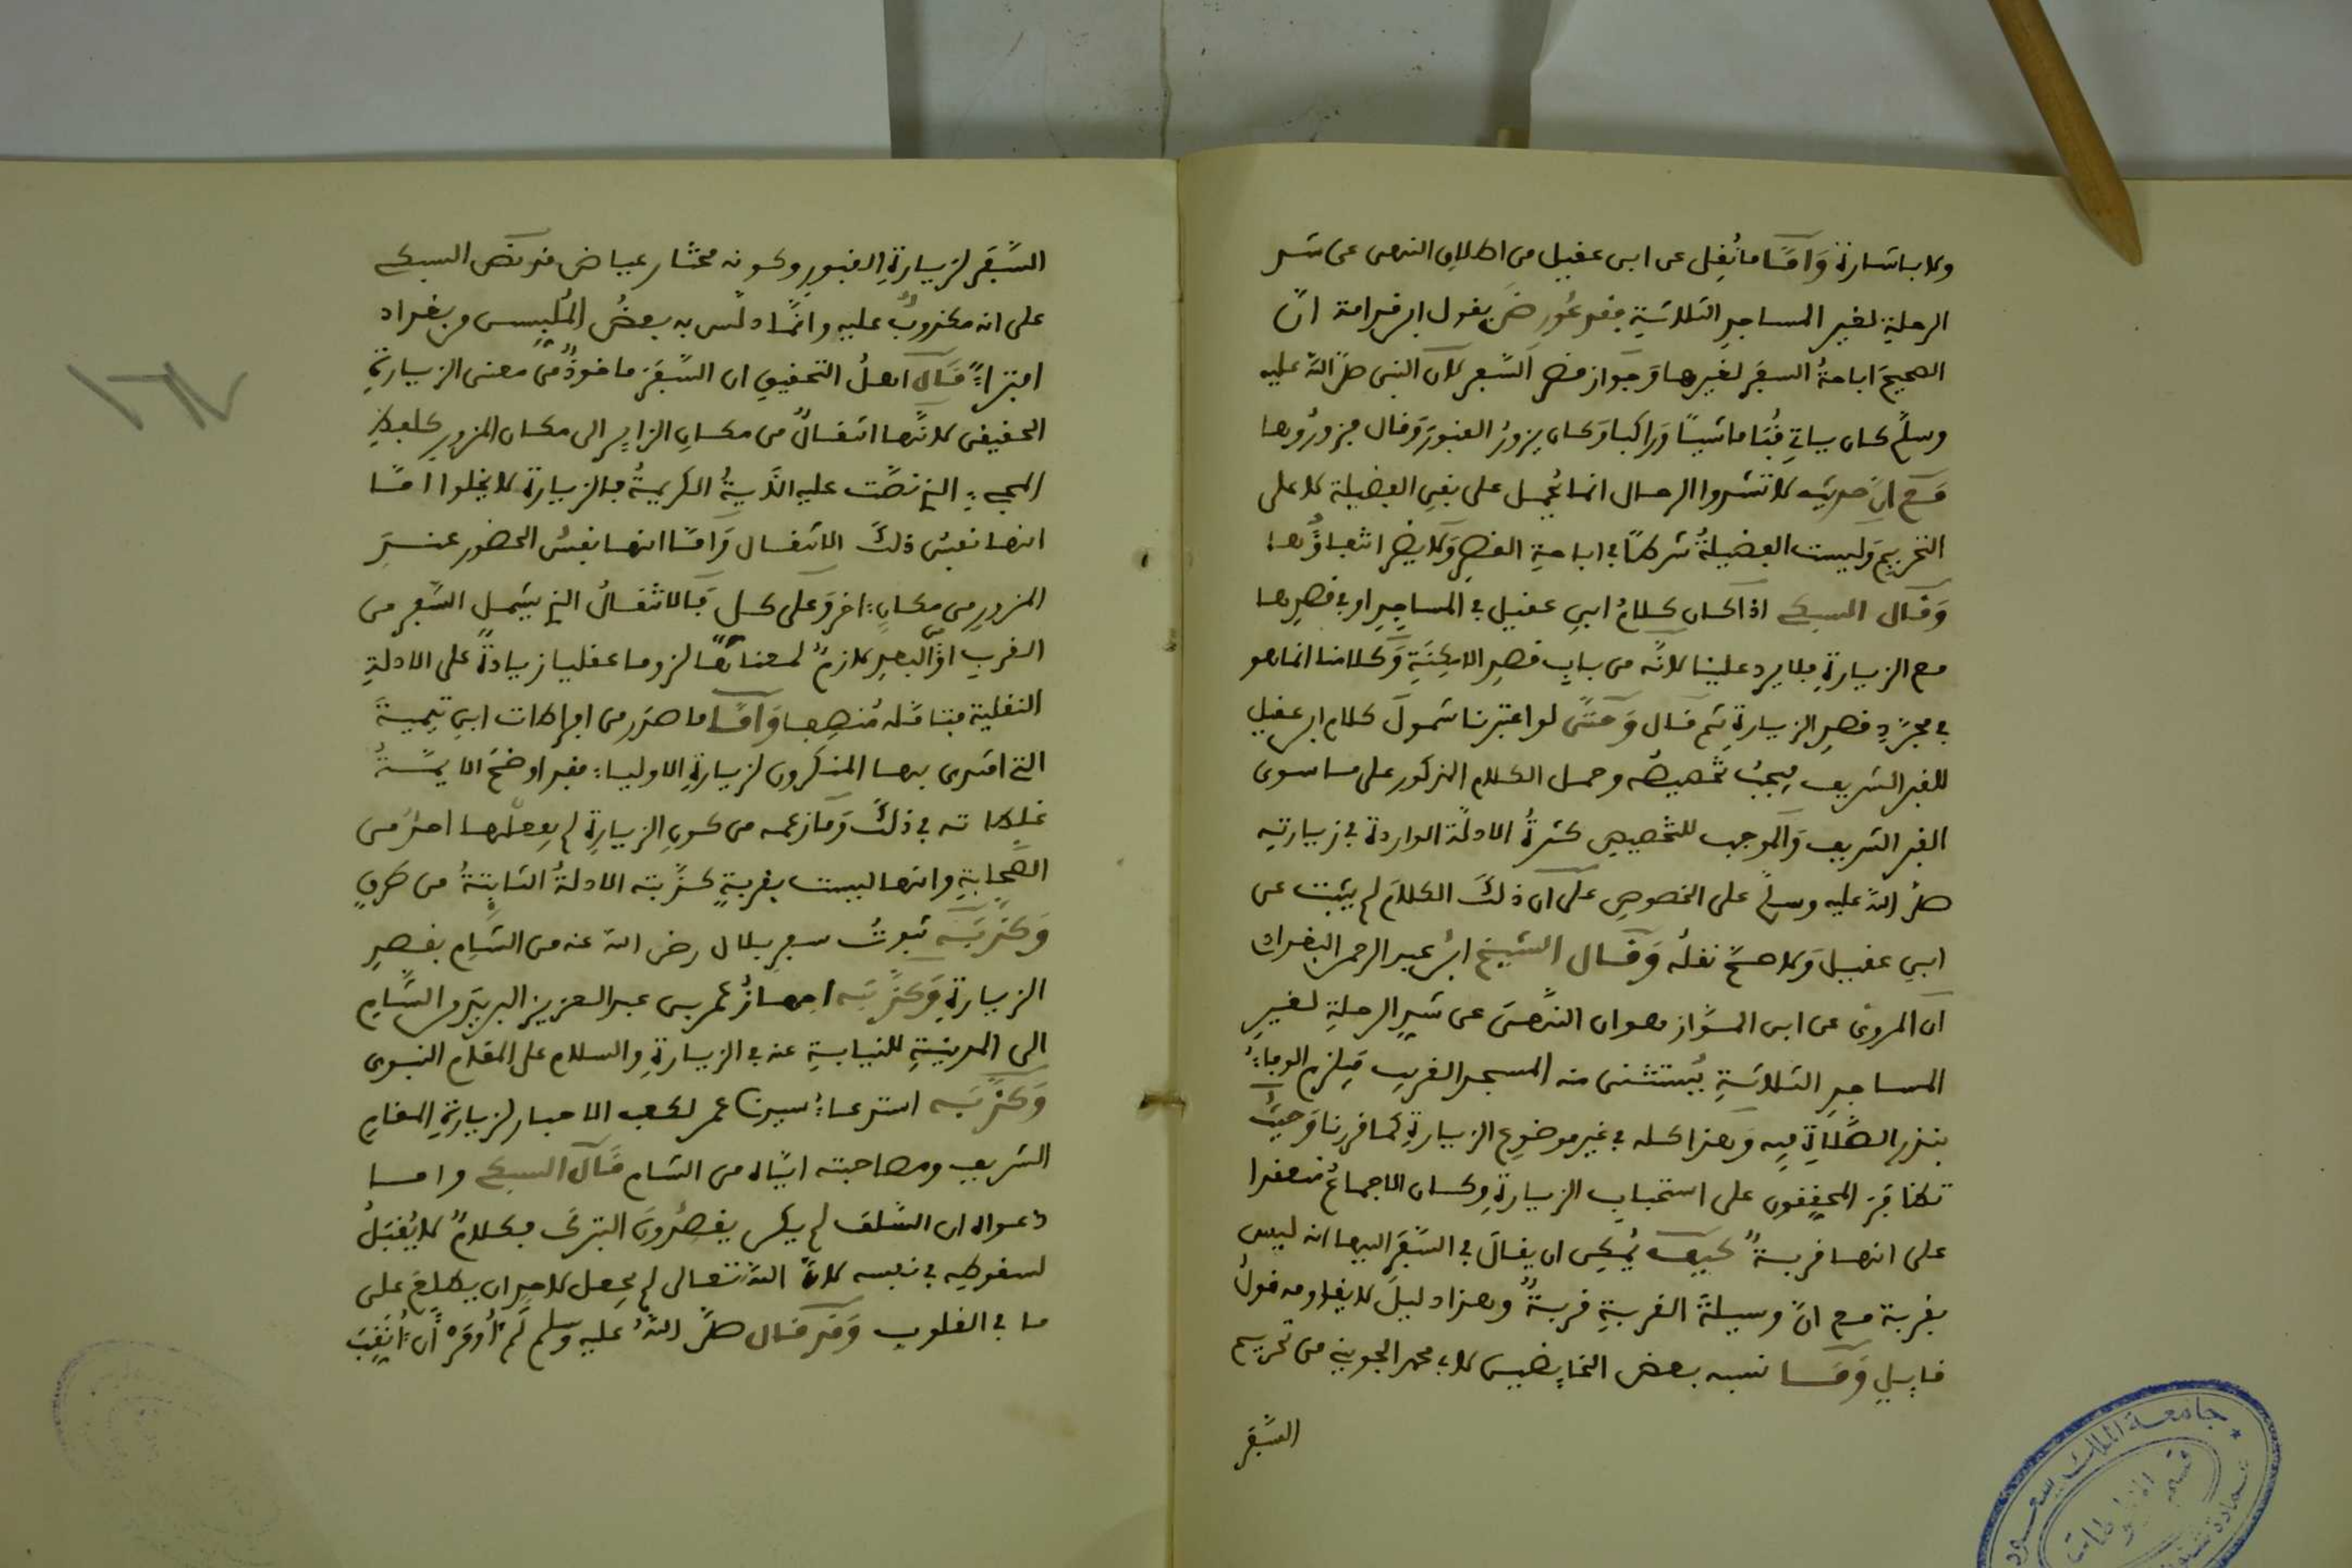 ولا باشارة وَأمَّا ما نُقِل عن ابن عقيل من اطلاق النهى عن شد
الرحلةِ لغير المساجدِ الثلاثةِ فقد عُورضَ بقول ابن قدامة انَّ
الصحيحَ اباحةُ السفرِ لغيرها وَجواز قصر السَّفر لان النبى صلَّى اللَّه عليه
وسلَّم كان ياتِي قُبَا ماشيًا وَراكبا وَكان يزورُ القبورَ وَقال فزورُوها
مَعَ انَّ حديث لا تشدوا الرحال انما يُحمل على نفيِ الفضيلة لا على
التحريم وَليست الفضيلةُ شرطًا في اباحةِ القصرِ وَلا يضر انتفاؤُها
وَقال السبكي اذا كان كلامُ ابنِ عقيل في المساجدِ او في قصدِها
مع الزيارةِ فلا يرد علينا لانَّه من بابِ قصدِ الامكِنَةِ وَكلامنا انما هو
في مجرَّدِ قصدِ الزيارةِ ثم قال وَحتَّى لو اعتبرنا شمولَ كلام ابن عقيل
للقبر الشريف فيجبُ تخصيصُه وحمل الكلام المذكور على ما سوى
القبر الشريف وَالموجب للتخصيص كثرةُ الادلَّة الواردة في زيارتِه
صلَّى اللَّه عليه وسلَّم على الخصوصِ على ان ذلكَ الكلامَ لم يثبت عن
ابنِ عقيل وَلا صحَّ نقلُه وَقال الشيخ ابنُ عبد الرحمن البغدادى
ان المروىَّ عن ابن المَّواز هو ان النَّهىَ عن شدِّ الرحلةِ لغيرِ
المساجدِ الثلاثةِ يُستثنى منه المسجد القريب فيلزم الوفاءُ
بنذرِ الصَّلاةِ فيه وَهذا كله في غير موضوع الزيارةِ كما قررنا وَحيثُ
تكافَرَ المحققون على استحبابِ الزيارةِ وكان الاجماعُ منعقدا
على انها قربةٌ كيفَ يُمكِن ان يقالَ في السَّفرِ اليها انه ليس
بقربة مع انَّ وسيلةَ القربةِ قربةٌ وهذا دليلٌ لا يقاومه قولُ
قايلٍ وَمَا نسبه بعض الخايضين لابي محمد الجوينى من تحريم
السَّفَر
السَّفَر لزيارةِ القبورِ وكونه مختار عياض فقد نصَّ السبكي
على انه مكذوبٌ عليه وانَّما دلَّس به بعضُ المُلبِسين من بغداد
افتراءً قال اهلُ التحقيقِ ان السَّفَرَ ماخوذٌ من معنى الزيارةِ
الحقيقى لانَّها انتقالٌ من مكانِ الزايرِ الى مكان المزورِ كلفظِ
المجيءِ الذي نصَّت عليه الآيةُ الكريمةُ فالزيارة لا يخلوا امَّا
انها نفسُ ذلكَ الانتقال وَامَّا انها نفسُ الحضور عندَ
المزورِ من مكانٍ اخر وَعلى كل فَالانتقالُ الذي يشمل السَّفر من
القربِ او البعدِ لازمٌ لمعناها لزوما عقليا زيادةً على الادلةِ
النقلية فتامَّله مُنصِفا وَأمَّا ما صدر من افراطات ابنِ تيميةَ
التي اقتدى بها المنكرون لزيارةِ الاولياءِ فقد اوضحَ الايمَّةُ
غلطاته في ذلكَ وَما زعمه من كونِ الزيارةِ لم يفعلها احدٌ من
الصَّحابةِ وانها ليست بقربةٍ كذَّبته الادلةُ الثابتةُ من طرقٍ
وَكذَّبَه ثبوتُ سفرِ بلال رضى اللَّه عنه من الشَّامِ بقصدِ
الزيارةِ وَكذَّبَه اجهازُ عمر بن عبد العزيز البريدَ من الشَّامِ
الى المدينةِ للنيابةِ عنه في الزيارةِ والسلام على المقام النبوى
وَكذَّبَه استدعاءُ سيدنا عمر لكعب الاحبار لزيارةِ المقامِ
الشريف ومصاحبته ايَّاه من الشام قَال السبكي واما
دعواه ان السَّلفَ لم يكن يقصدُونَ التبركَ فكلامٌ لا يُقبَلُ
لسقوطِه في نفسه لانَّ اللَّه تعالى لم يجعل لاحدٍ ان يطلعَ على
ما في القلوب وَقد قال صلَّى اللَّهُ عليه وسلم لَمْ أُومَرْ أَنْ أُنَقِّبَ
١٦٧
جامعة الملك سعود
قسم المخطوطات